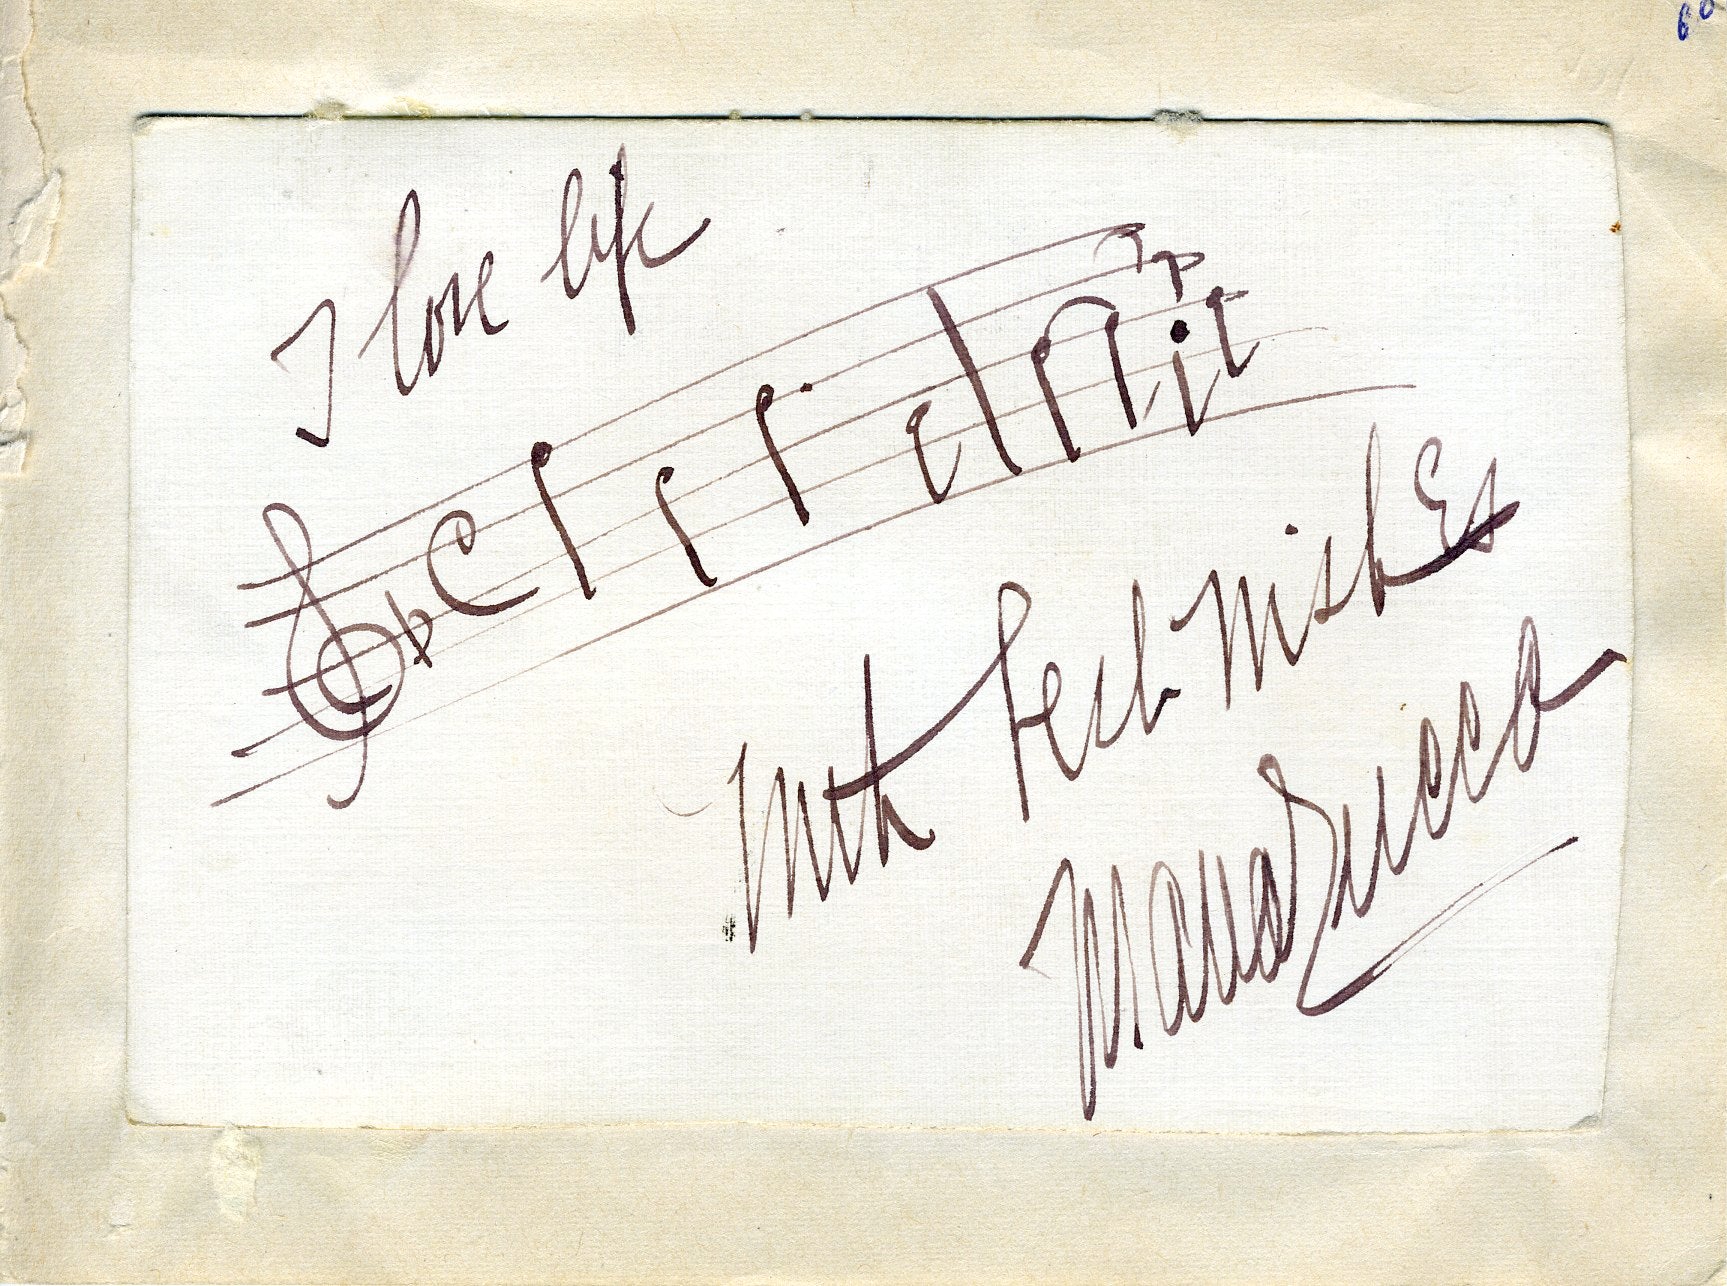 60
I love life
With Best Wishes
Mana Zucca